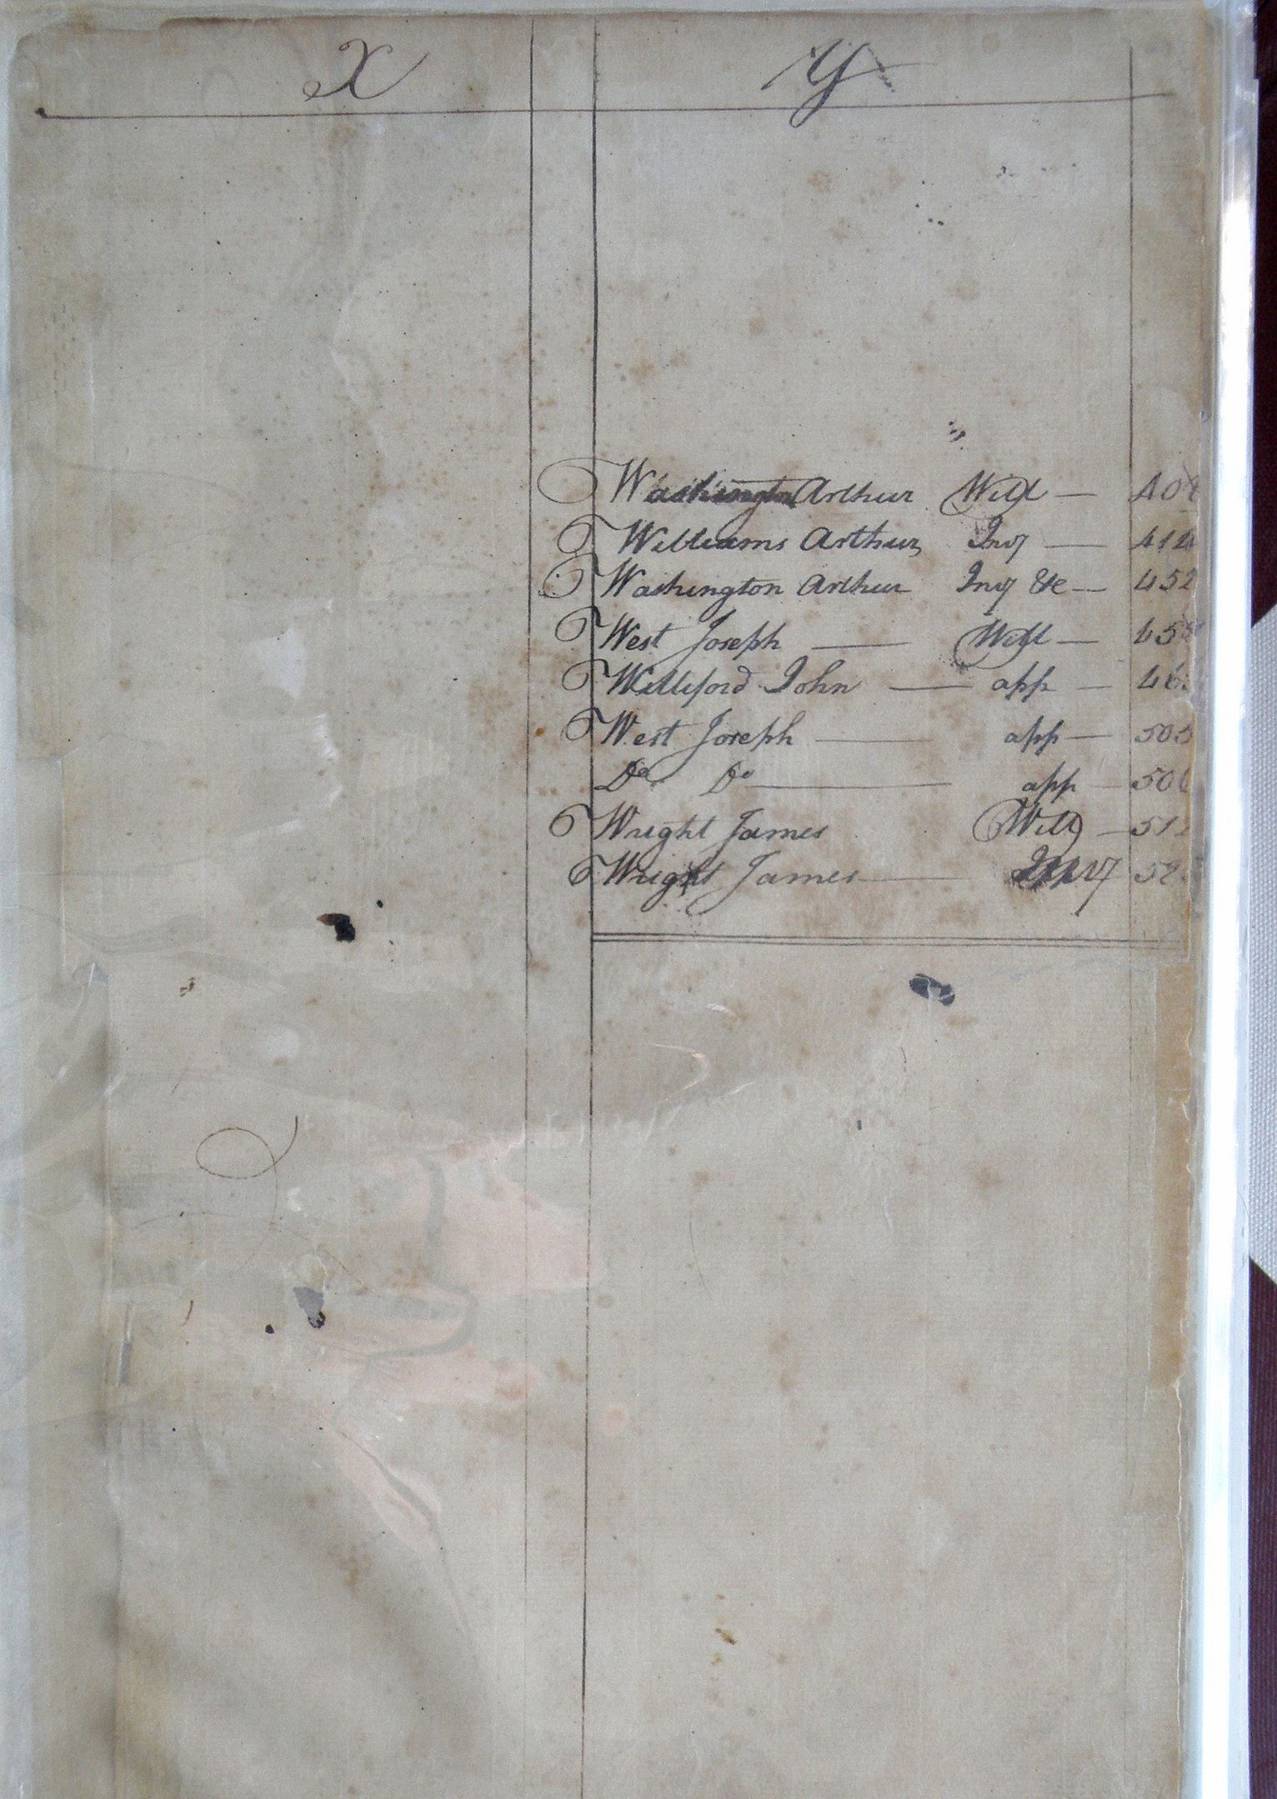 X
Y
Washington Arthur Will — 40
Williams Arthur Invy — 41
Washington Arthur Invy &c — 452
West Joseph — Will — 45
Williford John — app — 46
West Joseph — app — 505
Do Do — app — 50
Wright James Will — 51
Wright James — Invy 52